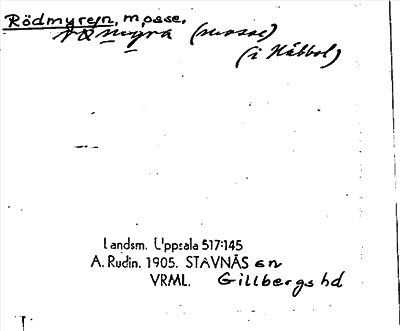 Rödmyren, mosse.
rö̀myra (mosse)
(i Håbbol)
Landsm. Uppsala 517:145
A. Rudin. 1905. STAVNÄS sn
VRML. Gillbergs hd